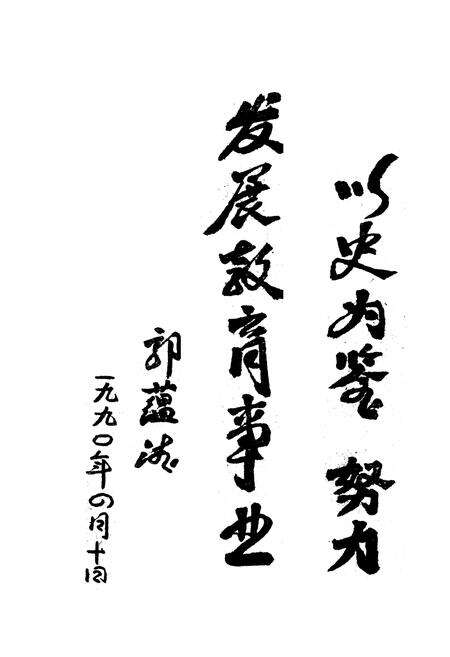 以史为鉴 努力
发展教育事业
郭蕴
一九九〇年四月十日